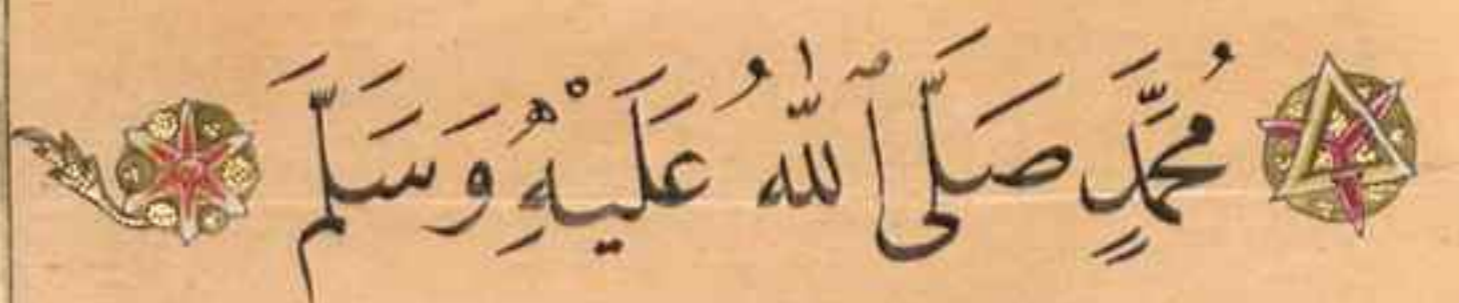 مُحَمَّدٍ صَلَّى ٱللّٰهُ عَلَيْهِ وَسَلَّمَ